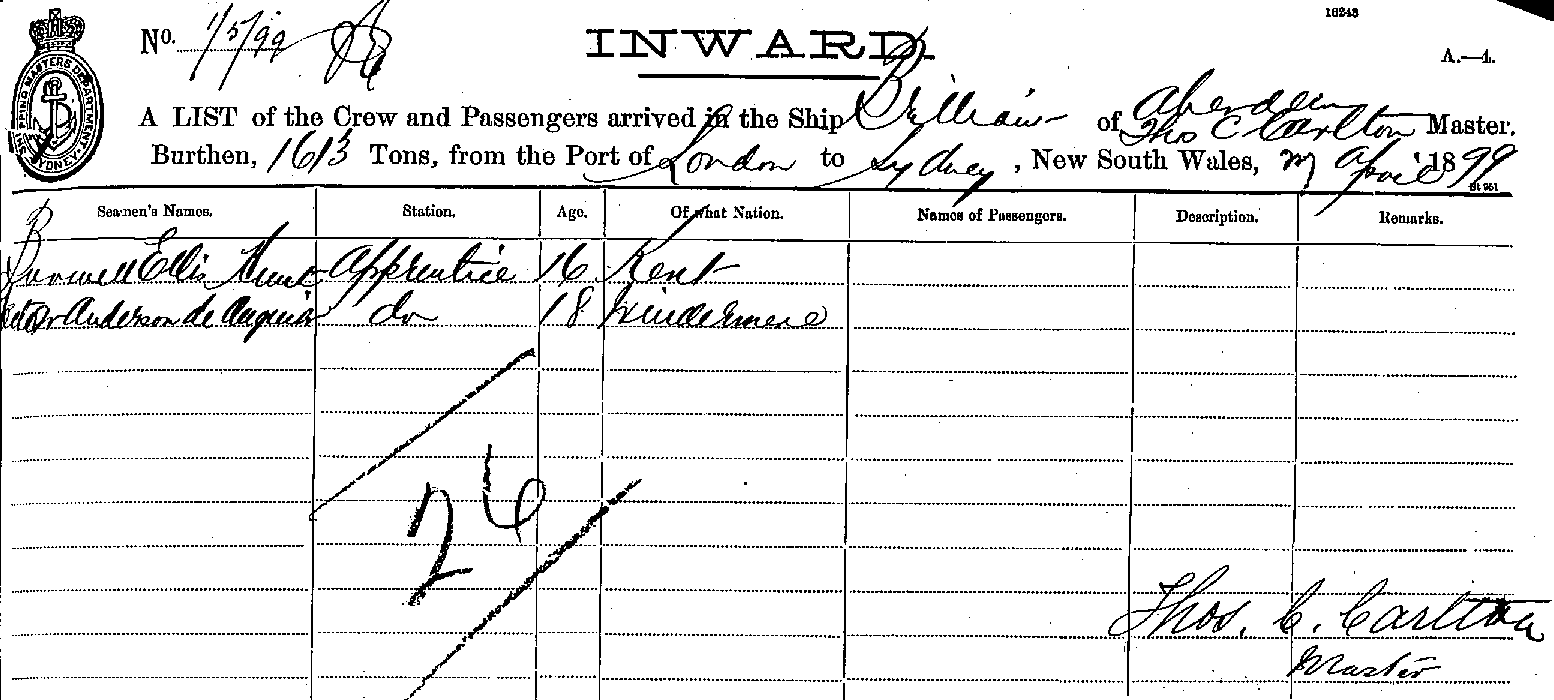 16243
No. 1/5/99
INWARD.
A.—4.
SHIPPING MASTERS DEPARTMENT SYDNEY
A LIST of the Crew and Passengers arrived in the Ship Brilliant of Aberdeen
Thos C Carlton Master.
Burthen, 1613 Tons, from the Port of London to Sydney, New South Wales, April 1899
Seamen's Names. Station. Age. Of what Nation. Names of Passengers. Description. Remarks.
Ellis Apprentice 16 Kent
Anderson de do 18 Windermere
26
Thos. C. Carlton
Master